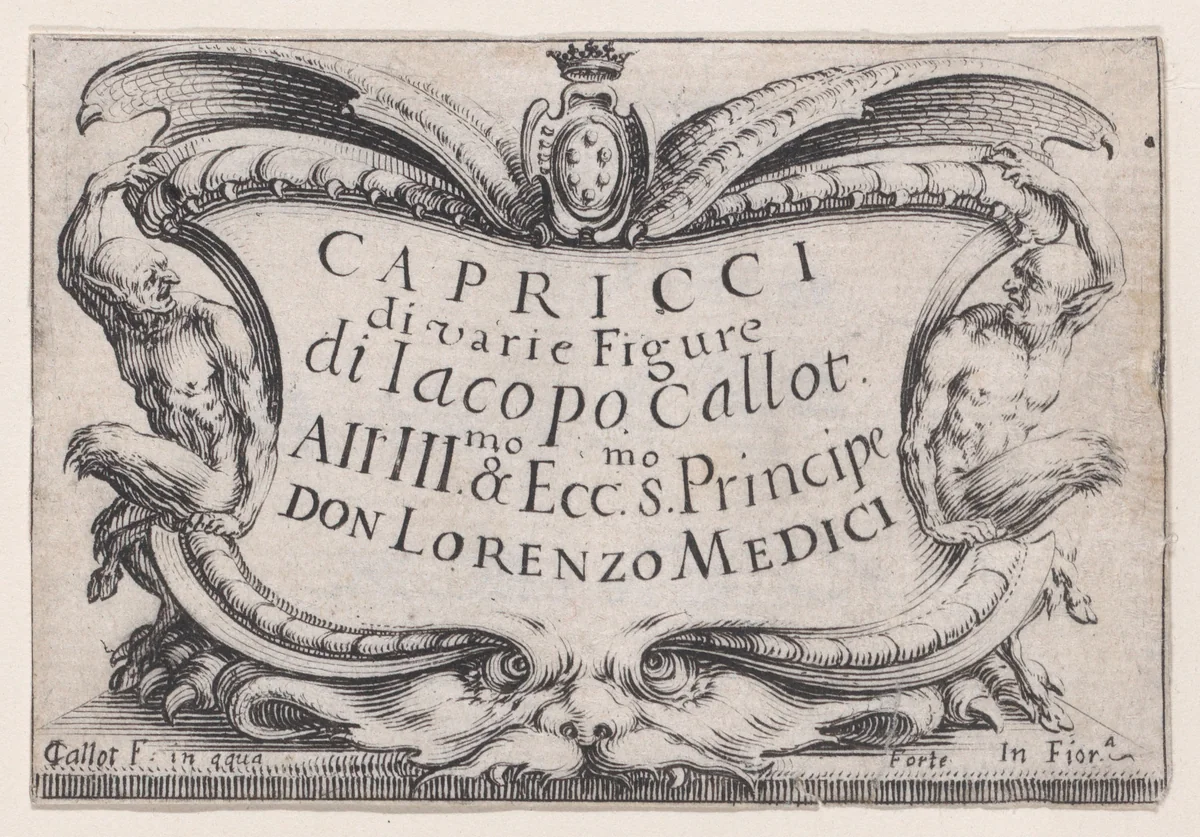 CAPRICCI
di varie Figure
di Iacopo Callot.
All' Ill.mo & Ecc.mo s. Principe
DON LORENZO MEDICI
Callot F. in aqua Forte In Fior.a